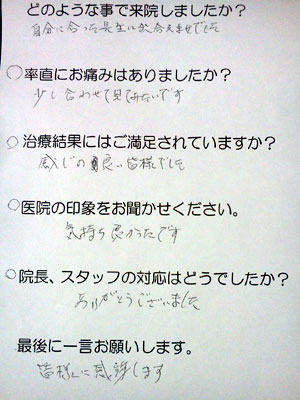 どのような事で来院しましたか?
自分に合った先生に出会えませでした
率直にお痛みはありましたか?
少し合わせて見てみたいです
治療結果にはご満足されていますか?
感じの良い皆様でした
医院の印象をお聞かせください。
気持ち良かったです
院長、スタッフの対応はどうでしたか?
ありがとうございました
最後に一言お願いします。
皆様に感謝します